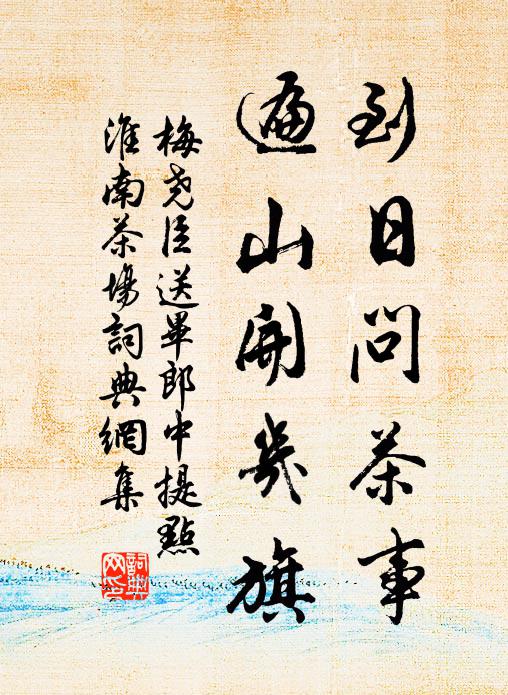 到日問茶事
遍山開幾旗
梅堯臣送畢郎中提點
淮南茶場詞典網集